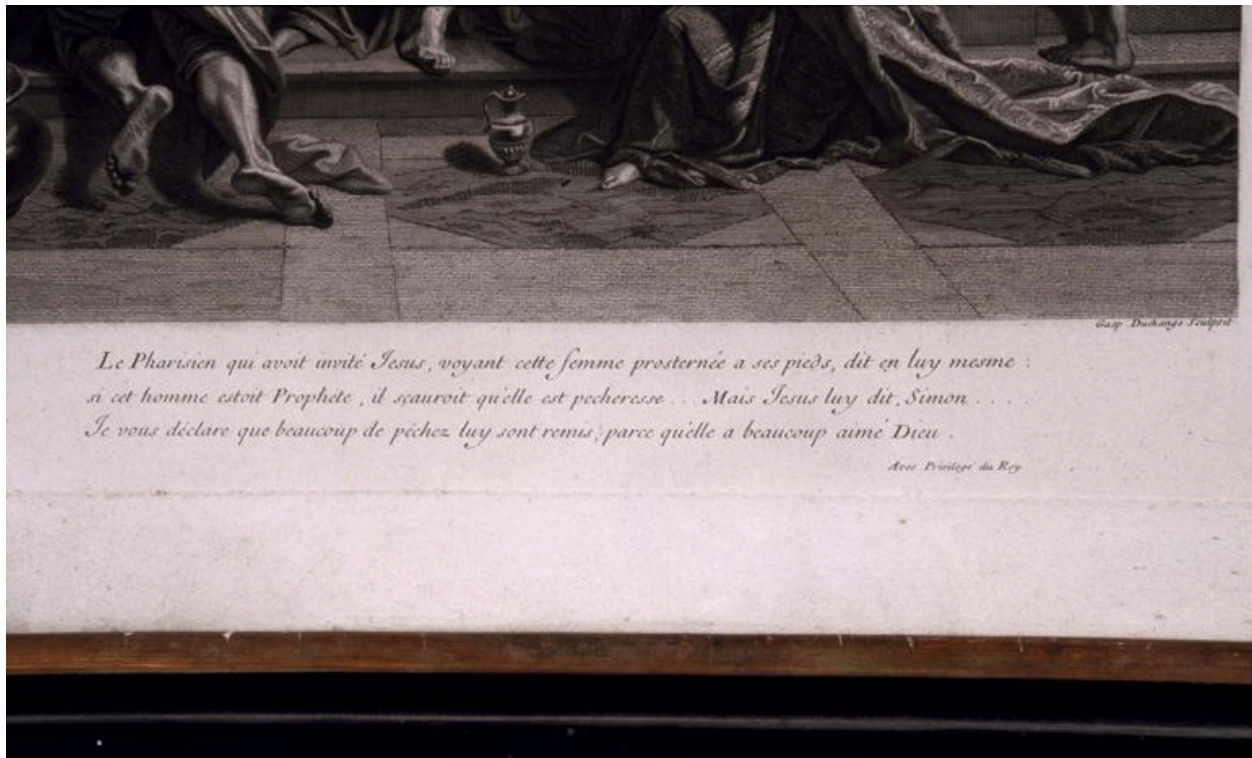 Gasp Duchange Sculpsit
Le Pharisien qui avoit invité Jesus, voyant cette femme prosternée a ses pieds, dit en luy mesme :
si cet homme estoit Prophéte, il sçauroit qu'elle est pecheresse... Mais Jesus luy dit, Simon....
Je vous déclare que beaucoup de péchez luy sont remis, parce qu'elle a beaucoup aimé Dieu.
Avec Privilege du Roy